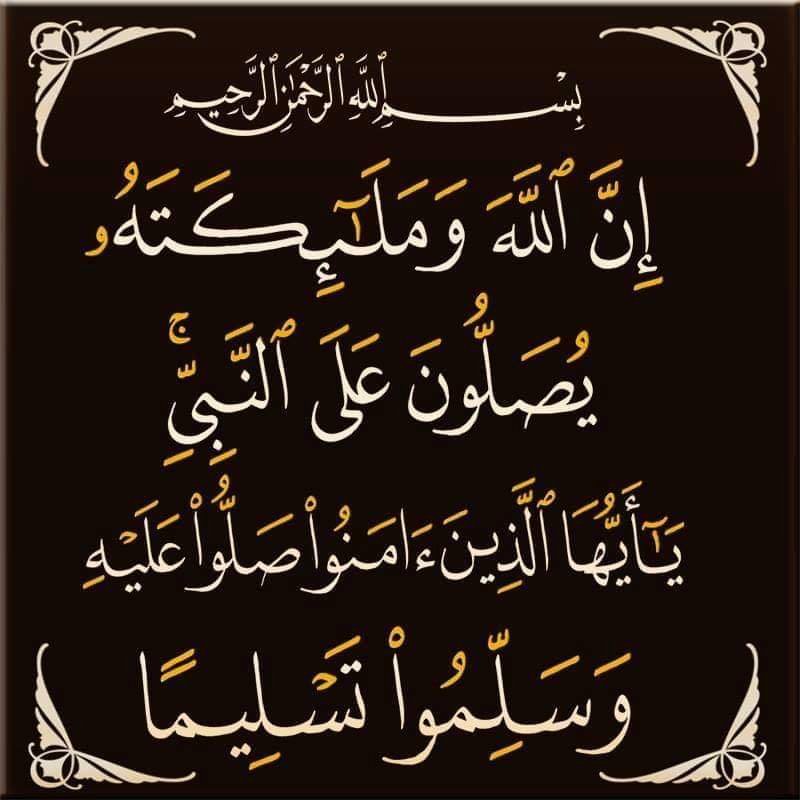 بِسْمِ ٱللَّهِ ٱلرَّحْمَٰنِ ٱلرَّحِيمِ
إِنَّ ٱللَّهَ وَمَلَـٰٓئِكَتَهُۥ
يُصَلُّونَ عَلَى ٱلنَّبِىِّۚ
يَـٰٓأَيُّهَا ٱلَّذِينَ ءَامَنُوا۟ صَلُّوا۟ عَلَيْهِ
وَسَلِّمُوا۟ تَسْلِيمًا